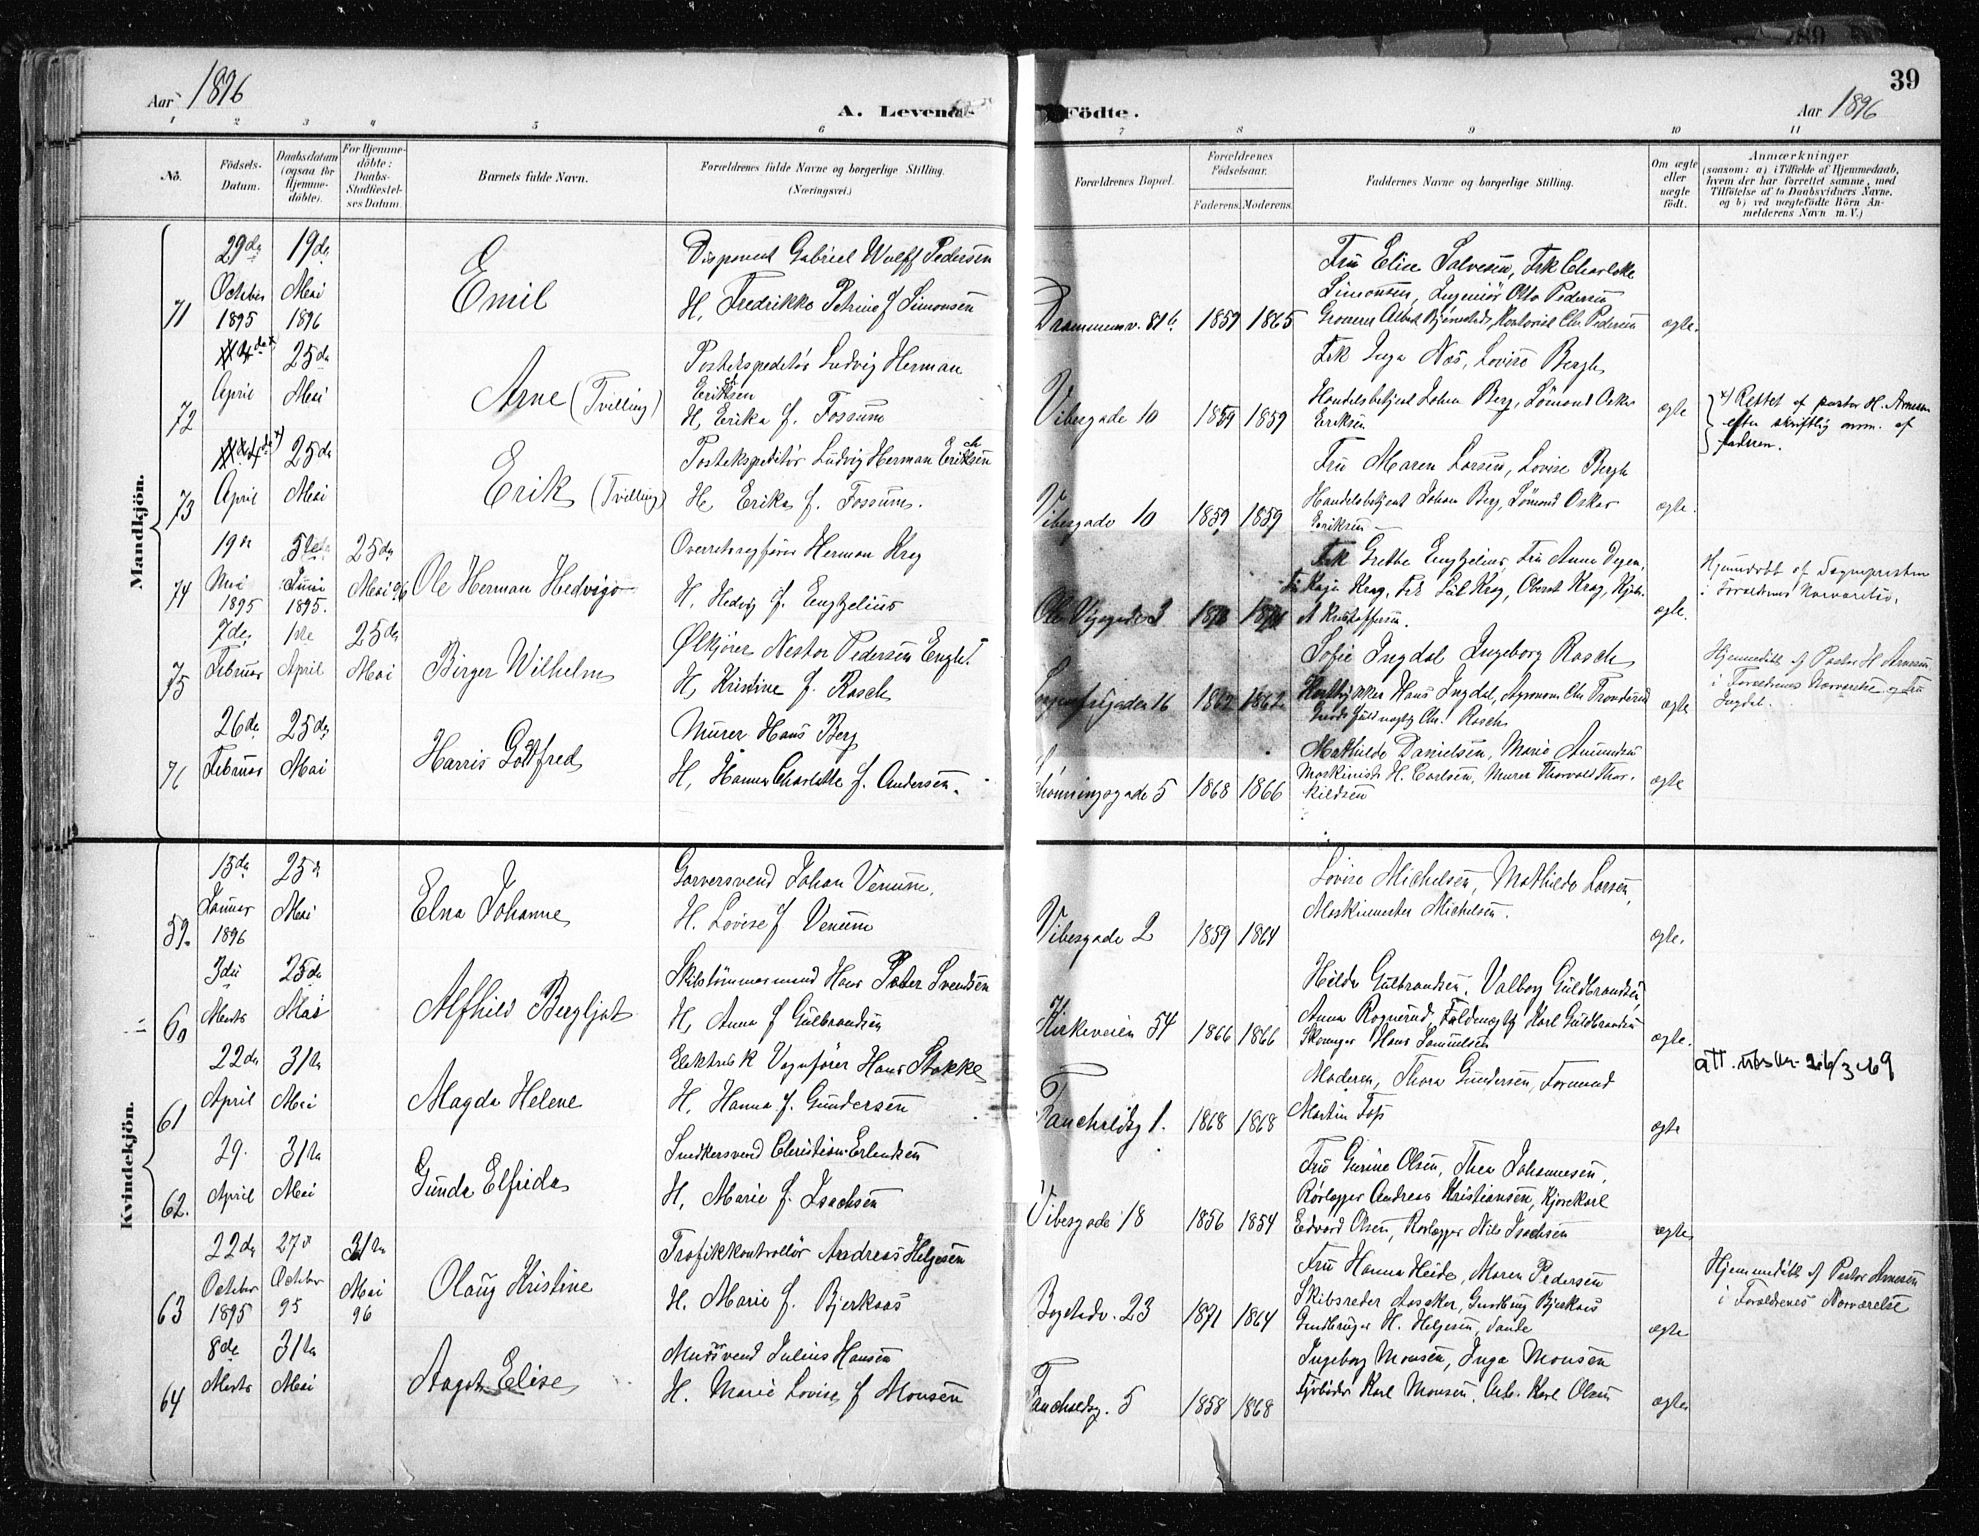 39
Aar 1896
A. Levende
Födte.
Aar 1896
1 2 3 4 5 6 7 8 9 10 11
No.
Födsels-
Datum.
Daabsdatum
(ogsaa for
Hjemme-
döbte).
For Hjemme-
döbte:
Daabs-
Stadfæstel-
ses Datum.
Barnets fulde Navn.
Forældrenes fulde Navne og borgerlige Stilling.
(Næringsvei.)
Forældrenes Bopæl.
Forældrenes
Födselsaar.
Faderens. Moderens.
Faddernes Navne og borgerlige Stilling.
Om ægte
eller
uægte
födt.
Anmærkninger
(saasom: a) i Tilfælde af Hjemmedaab,
hvem der har forrettet samme, med
Tilföielse af to Daabsvidners Navne,
og b) ved uægtefödte Börn An-
melderens Navn m. V.)
Mandkjön.
71
29de
October
1895
19de
Mai
1896
Emil
Disponent Gabriel Wulff Pedersen
H. Fredrikke Petrine f. Simonsen
Drammensv. 81b
1859 1865
Fru Elise Salvesen, Frk Charlotte
Simonsen, Ingeniör Otto Pedersen
ægte.
72
April
25de
Mai
Arne (Tvilling)
Postekspeditör Ludvig Herman
Eriksen
H. Erika f. Fossum
Vibesgade 10
1859 1859
Frk Inga Næs, Lovise Bergh
Handelsbetjent Johan Berg, Lömand Oskar
Eriksen
ægte
x) Rettet af pastor H. Arnesen
efter skriftlig anm. af
faderen.
73
April
25de
Mai
Erik (Tvilling)
Postekspeditör Ludvig Herman Eriksen
H. Erika f. Fossum.
Vibesgade 10
1859 1859
Fru Maren Larsen, Lovise Bergh
Handelsbetjent Johan Berg, Lömand Oskar
Eriksen
ægte.
74
19de
Mai
1895
5te
Juni
1895.
25de
Mai 96
Ole Herman Hedvigo
Overretssagförer Herman Krag
H. Hedvig f. Engzelius
Frk Grethe Engzelius, Fru Anna
Fru Kaja Krag, Frk Lul Krag, Oberst Krag,
A Kristoffersen.
ægte.
Hjemmedöbt af Sognepresten
i Forældrenes Nærværelse.
75
7de
Februar
1ste
April
25de
Mai
Birger Wilhelm
Ølkjörer Nestor Pedersen
H. Kristine f. Rasch
16
1862 1862
Sofie Ingdal Ingeborg Rasch
Hans Ingdal, Agronom Chr.
Chr. Rasch
ægte
Hjemmedöbt af Pastor H Arnesen
i Forældrenes Nærværelse og Fru
Ingdal.
76
26de
Februar
25de
Mai
Harris Gotfred
Murer Hans Berg
H. Hanna Charlotte f. Andersen.
5
1868 1866
Mathilde Danielsen, Marie Amundsen
Maskinist H. Carlsen, Murer Thorvald Thor-
kildsen
ægte
Kvindekjön.
59.
15de
Januar
1896
25de
Mai
Elna Johanne
Garversvend Johan Venum.
H. Lovise f Venum
Vibesgade 2
1859 1864
Lovise Michelsen, Mathilde Larsen,
Maskinmester Michelsen.
ægte.
60
3die
Marts
25de
Mai
Alfhild Bergljot
Skibstömmermand Hans Peter Svendsen
H. Anna f Gulbrandsen
Kirkeveien 54
1866 1866
Hilda Gulbrandsen, Valborg Guldbrandsen,
Anna Rognerud, Karl Guldbrandsen
Hans Samuelsen
ægte.
61
22de
April
31te
Mai
Magda Helene
Elektrisk Vognförer Hans Stokke
H. Hanna f. Gundersen
1.
1868 1868
Moderen, Thora Gundersen, Formand
Martin Foss
ægte
att. 26/3-69
62.
29.
April
31te
Mai
Gunda Elfrida
Snedkersvend Christian Erlendsen
H. Marie f. Isachsen
Vibesgade 18
1856 1854
Fru Gurine Olsen, Thea Johannesen,
Rörlægger Andreas Kristiansen, Kjörekarl
Edvard Olsen, Rörlægger Nils Isachsen
ægte
63
22de
October
1895
27de
October
95
31te
Mai
96
Olaug Kristine
Trafikkontrollör Andreas Helgesen
H. Marie f. Bjerkaas
Bogstadv. 23
1871 1864
Fru Hanna Heide, Maren Pedersen
Skibsreder Aasaker, Bjerkaas
Gaardbruger H. Helgesen, Sande
ægte
Hjemmedöbt af Pastor Arnesen
i Forældrenes Nærværelse
64
8de
Marts
31te
Mai
Aagot Elise
Mursvend Julius Hansen
H. Marie Lovise f Monsen
5
1858 1868
Ingeborg Monsen, Inga Monsen
Karl Monsen, Arb. Karl Olsen
ægte